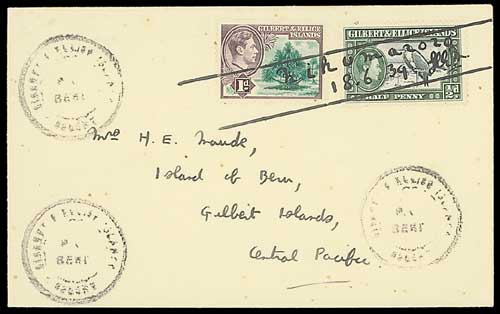 GILBERT & ELLICE
ISLANDS
1D
GILBERT & ELLICE ISLANDS
HALF PENNY
½D
18.6.39
GILBERT & ELLICE ISLANDS
BERU
GILBERT & ELLICE ISLANDS
BERU
GILBERT & ELLICE ISLANDS
BERU
Mrs H. E. Maude,
Island of Beru,
Gilbert Islands,
Central Pacific